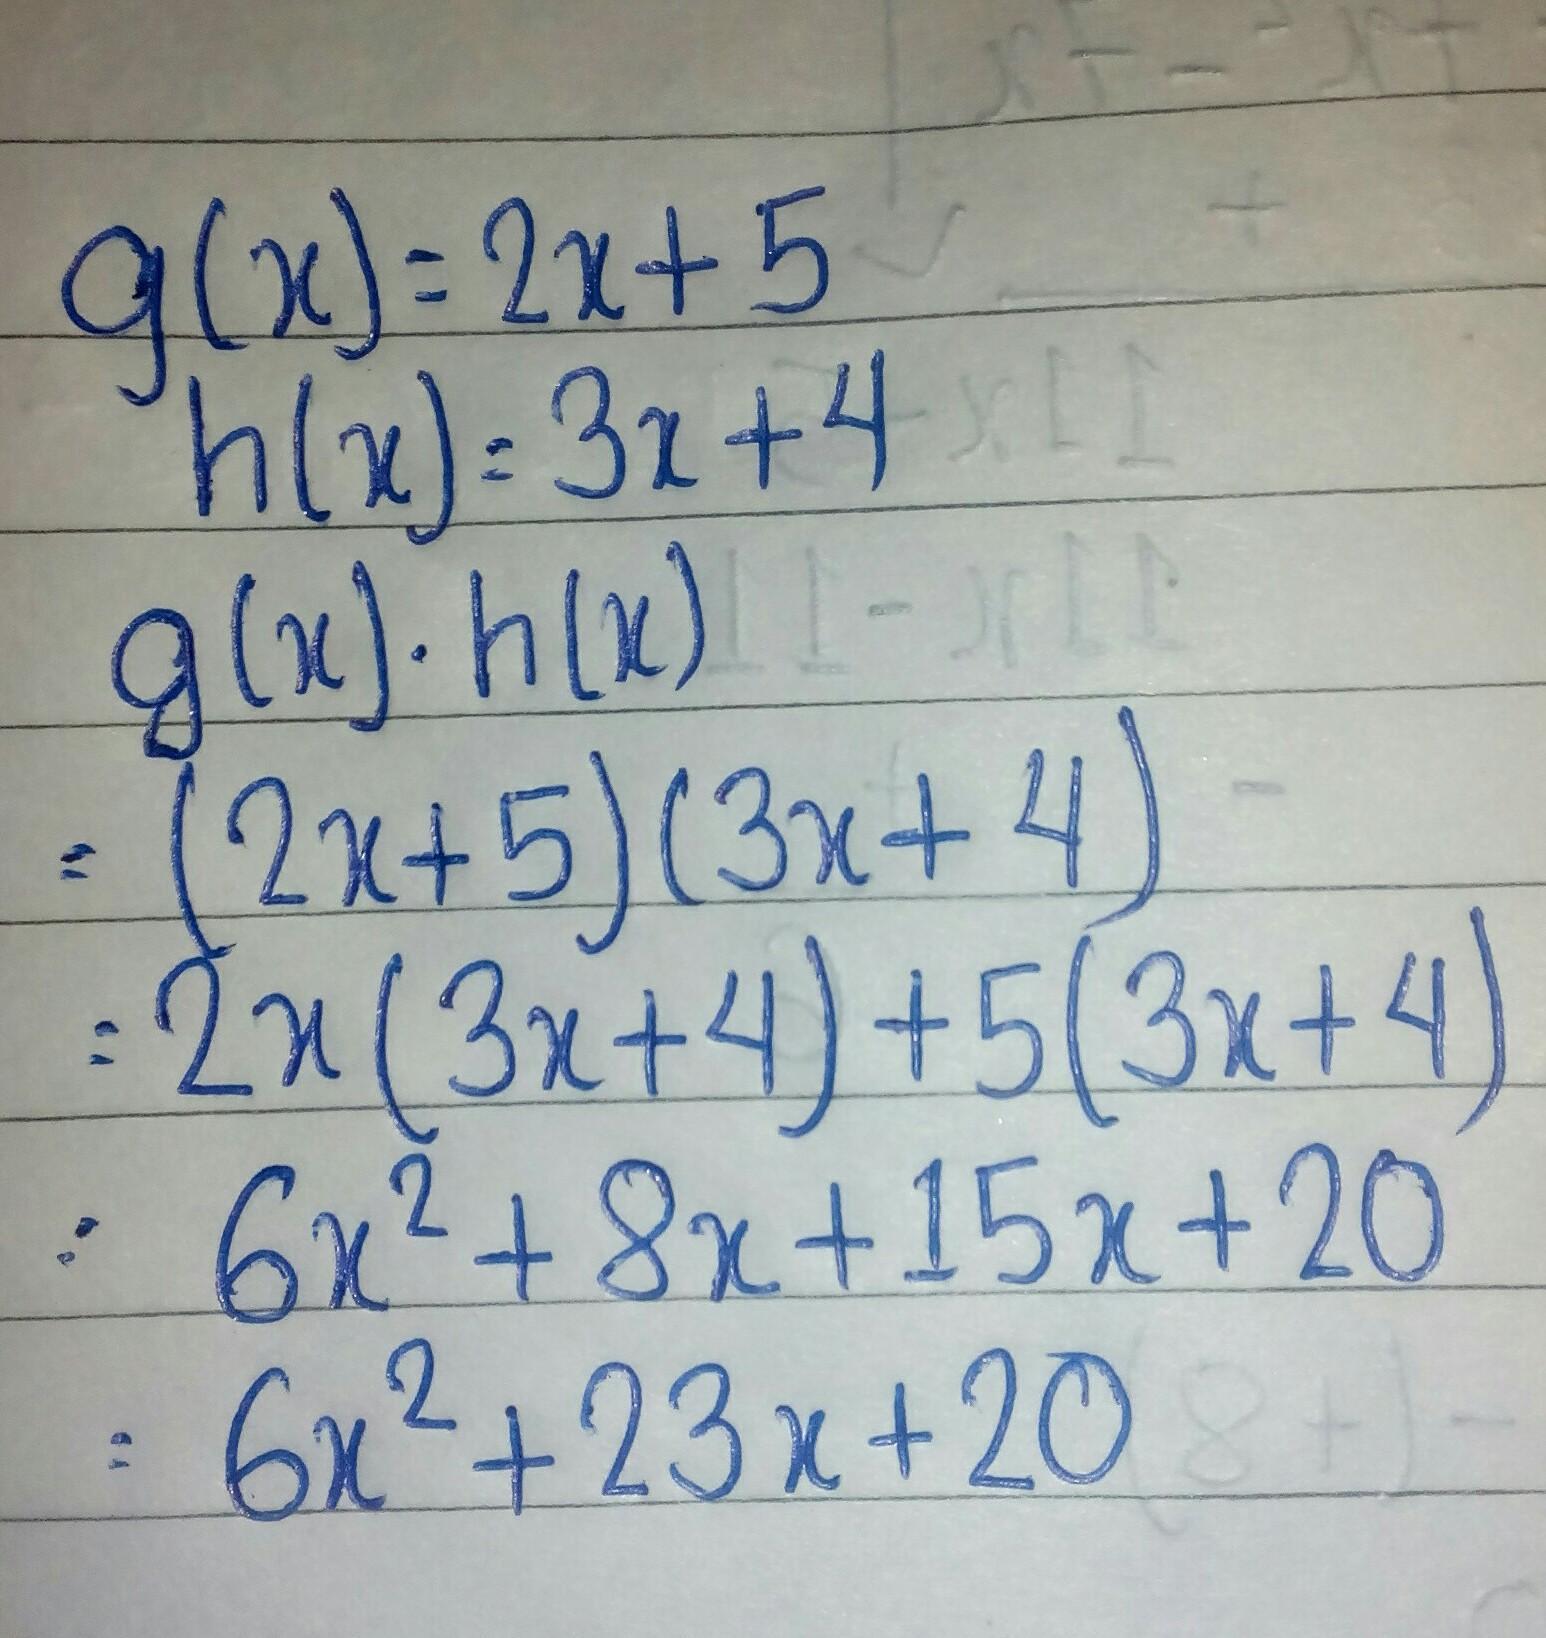 g(x) = 2x + 5
h(x) = 3x + 4
g(x) · h(x)
= (2x + 5)(3x + 4)
= 2x(3x + 4) + 5(3x + 4)
= 6x² + 8x + 15x + 20
= 6x² + 23x + 20